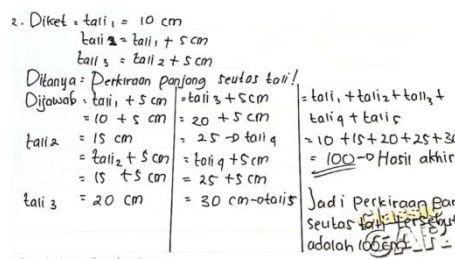 2. Diket = tali₁ = 10 cm
tali 2 = tali₁ + 5 cm
tali 3 = tali 2 + 5 cm
Ditanya = Perkiraan panjang seutas tali!
Dijawab = tali₁ + 5 cm
= 10 + 5 cm
tali 2 = 15 cm
= tali₂ + 5 cm
= 15 + 5 cm
tali 3 = 20 cm
= tali 3 + 5 cm
= 20 + 5 cm
= 25 → tali 4
= tali 4 + 5 cm
= 25 + 5 cm
= 30 cm → tali 5
= tali₁ + tali₂ + tali₃ +
tali 4 + tali 5
= 10 + 15 + 20 + 25 + 30
= 100 → Hasil akhir
Jadi Perkiraan
seutas tali tersebut
adalah 100 cm